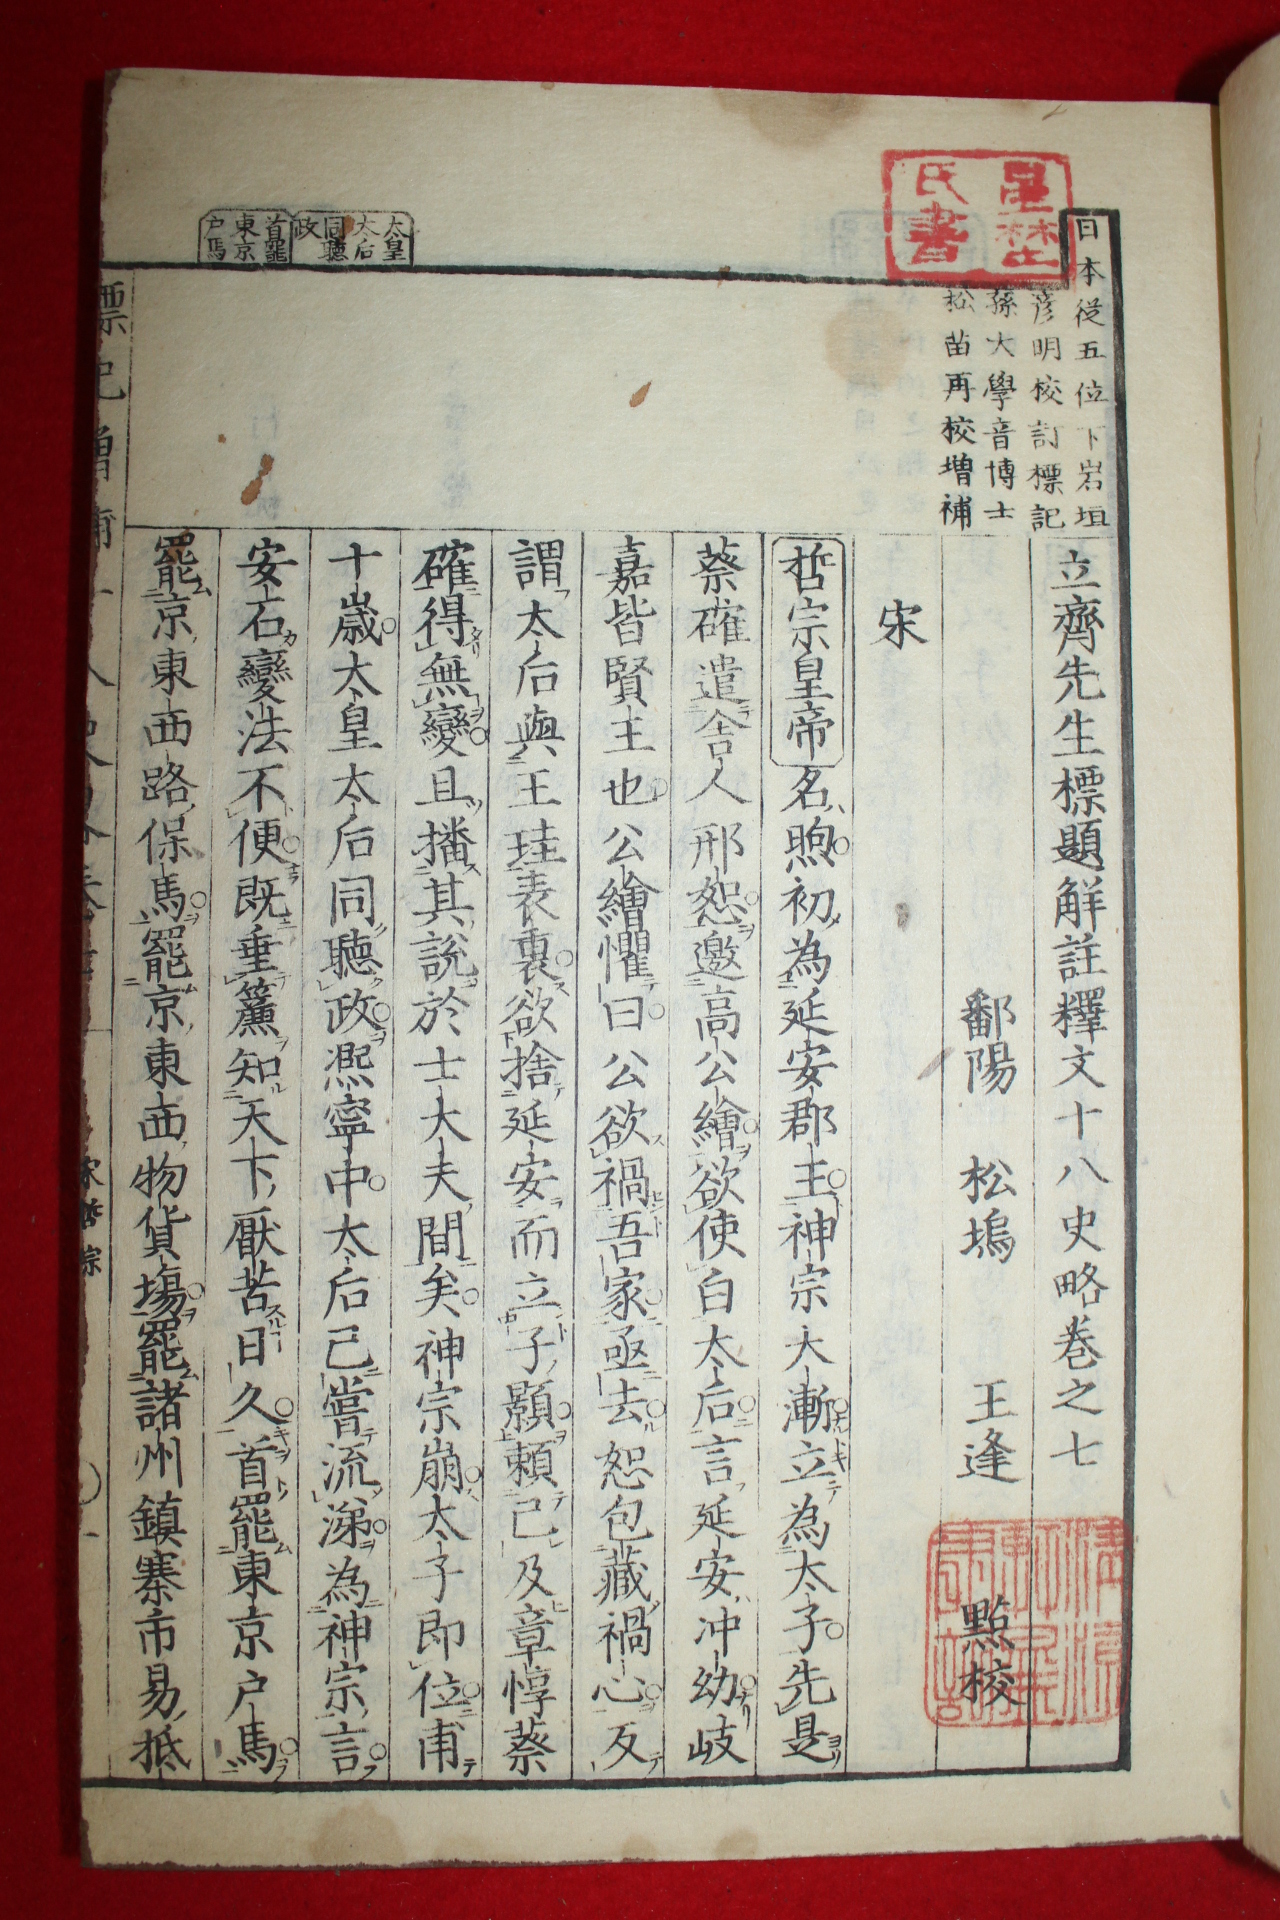 日本從五位下岩垣
彦明校訂標記
孫大學音博士
松苗再校増補
立齋先生標題解註釋文十八史略巻之七
鄱陽 松塢 王逢 點校
宋
哲宗皇帝名煦初為延安郡王神宗大漸立為太子先是
蔡確遣舍人邢恕邀高公繪欲使白太后言延安冲幼岐
嘉皆賢王也公繪懼曰公欲禍吾家亟去恕包藏禍心反
謂太后與王珪表裏欲捨延安而立子顥賴己及章惇蔡
確得無變且播其說於士大夫間矣神宗崩太子即位甫
十歲太皇太后同聽政熈寧中太后已嘗流涕為神宗言
安石變法不便既垂簾知天下厭苦日久首罷東京户馬
罷京東西路保馬罷京東西物貨場罷諸州鎮寨市易抵
太皇太后同聽政
首罷東京户馬
氏書